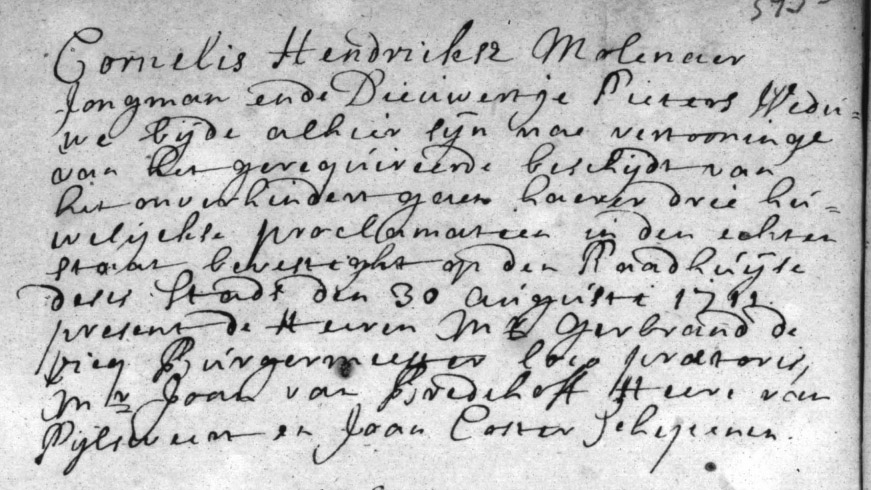 Cornelis Hendricksz Molenaer
Jongman ende Dieuwertje Pieters Wedu=
we bijde alhier sijn nae vertooninge
van het gerequireerde bescheijdt van
het onverhindert gaen haerer drie hu=
welijckse proclamatien in den echten
staat bevestight op den Raadhuijse
deses Stads den 30 augusti
present de Heeren Mr Gerbrand de
vicq Burgermeester loco prætoris,
Mr Joan van Bredehoff Heere van
Pijlsweert en Joan Coster Schepenen.